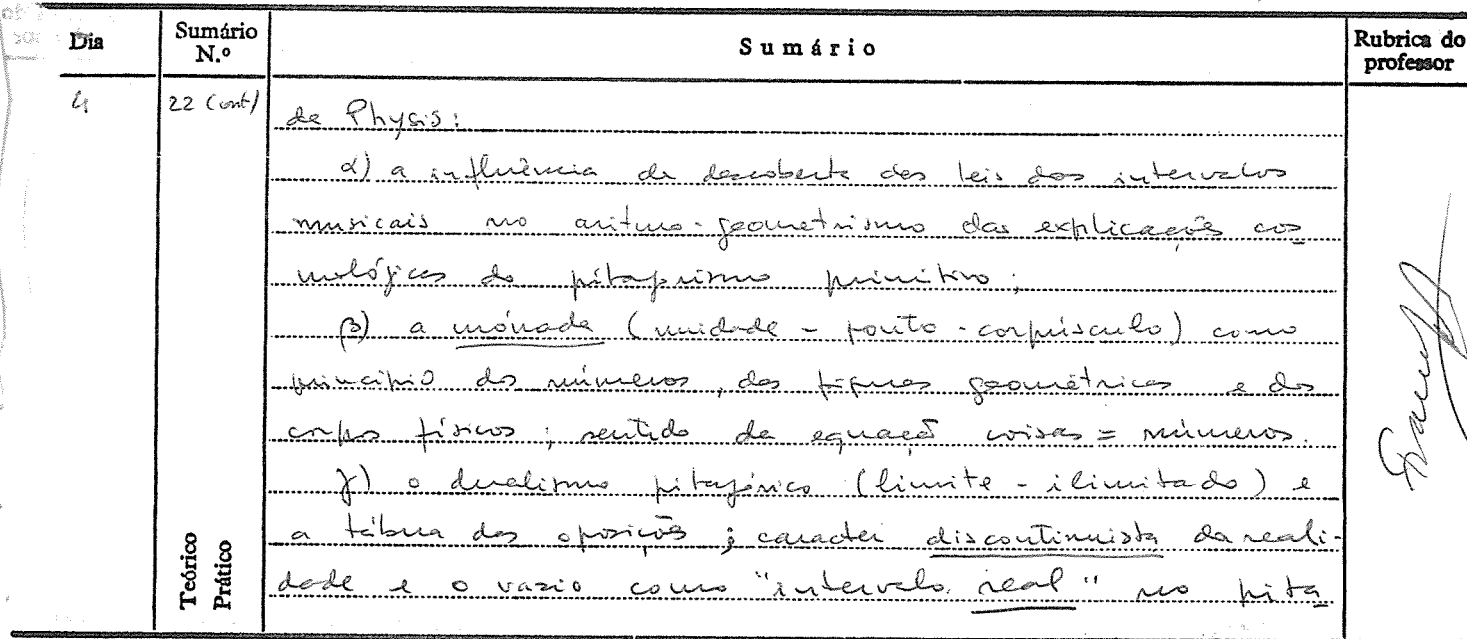 Dia Sumário N.º Sumário Rubrica do professor
4 22 (cont)
de Physis:
α) a influência da descoberta das leis dos intervalos
musicais no aritmo-geometrismo das explicações cos
mológicas do pitagorismo primitivo;
β) a mónada (unidade - ponto - corpúsculo) como
princípio dos números, das figuras geométricas e dos
corpos físicos; sentido da equação coisas = números.
γ) o dualismo pitagórico (limite - ilimitado) e
a tábua das oposições; caracter discontinuista da reali-
dade e o vazio como "intervalo real" no pita
Teórico
Prático